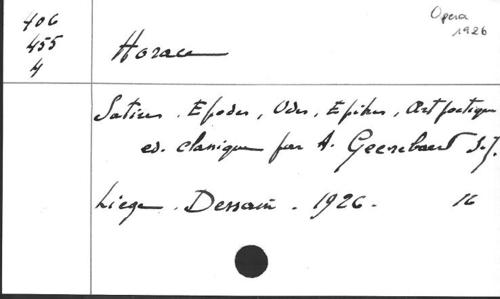 406
455
4
Opera
1926
Horace
Satires. Epodes, Odes, Epitres, Art poetique
ed. classique par A. Geerebaert S.J.
Liege. Dessain. 1926. 16